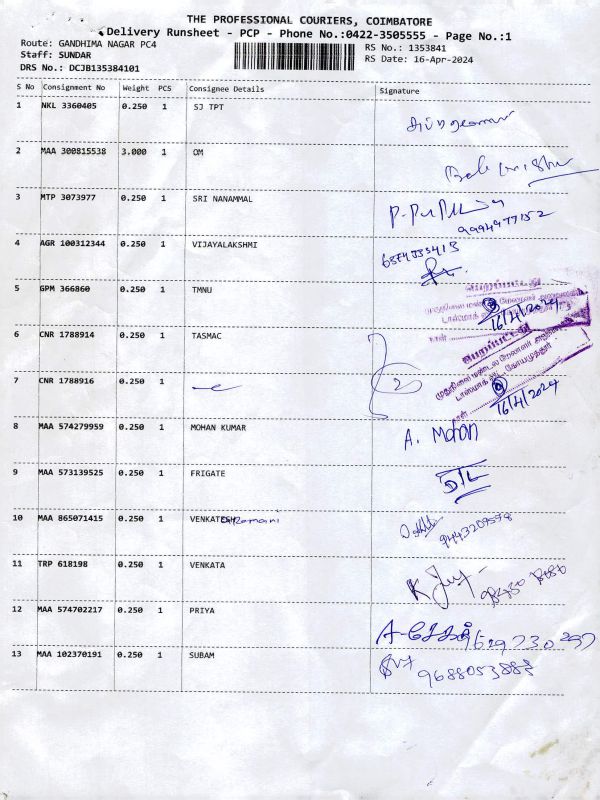 THE PROFESSIONAL COURIERS, COIMBATORE
Delivery Runsheet - PCP - Phone No.:0422-3505555 - Page No.:1
Route: GANDHIMA NAGAR PC4
RS No.: 1353841
Staff: SUNDAR
RS Date: 16-Apr-2024
DRS No.: DCJB135384101
S No Consignment No Weight PCS Consignee Details Signature
1 NKL 3360405 0.250 1 SJ TPT
2 MAA 300815538 3.000 1 OM
3 MTP 3073977 0.250 1 SRI NANAMMAL
9994977152
4 AGR 100312344 0.250 1 VIJAYALAKSHMI
5 GPM 366860 0.250 1 TMNU
பெறப்பட்டது
16/4/2024
6 CNR 1788914 0.250 1 TASMAC
பெறப்பட்டது
7 CNR 1788916 0.250 1 2
16/4/2024
8 MAA 574279959 0.250 1 MOHAN KUMAR A. Mohan
9 MAA 573139525 0.250 1 FRIGATE
10 MAA 865071415 0.250 1 VENKATESH
11 TRP 618198 0.250 1 VENKATA
12 MAA 574702217 0.250 1 PRIYA
13 MAA 102370191 0.250 1 SUBAM 9688053883